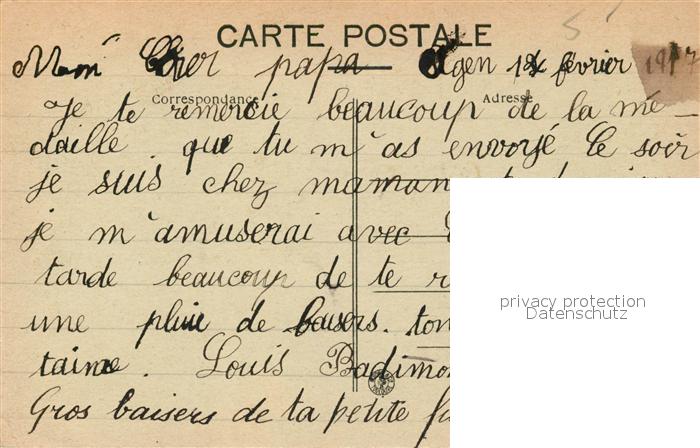 CARTE POSTALE
Mon Cher papa Agen 18 février 1917
Correspondance Adresse
Je te remercie beaucoup de la mé_
daille que tu m'as envoyé Ce soir
je suis chez maman
je m'amuserai avec
tarde beaucoup de te r
une pluie de baisers. ton
taime. Louis Badimo
Gros baisers de ta petite
privacy protection
Datenschutz